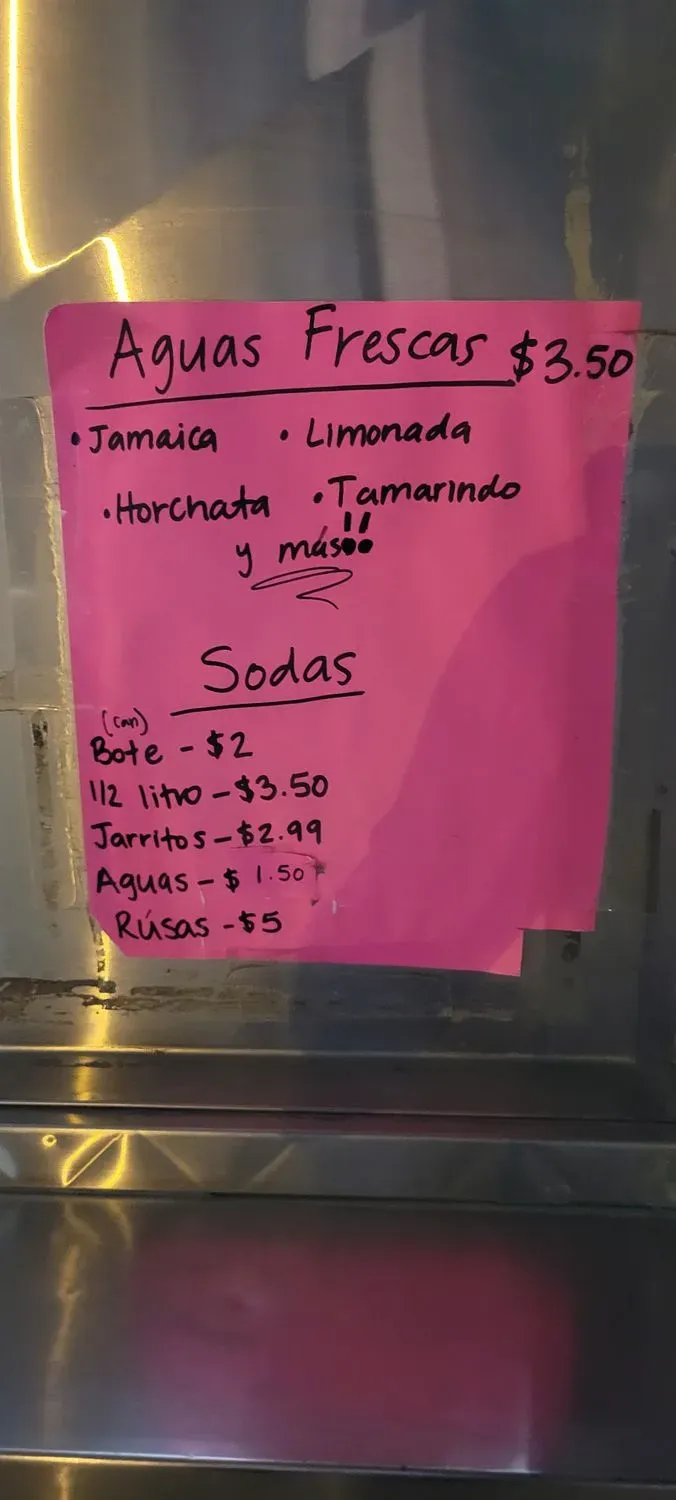 Aguas Frescas $3.50
• Jamaica • Limonada
• Horchata • Tamarindo
y más!!
Sodas
(can)
Bote - $2
1/2 litro - $3.50
Jarritos - $2.99
Aguas - $ 1.50
Rúsas - $5